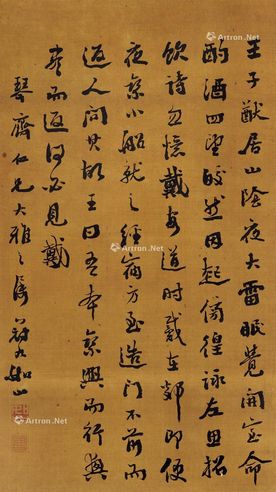 王子猷居山陰夜大雪眠覺開室命
酌酒四望皎然因起彷徨詠左思招
隱詩忽憶戴安道時戴在剡即便
夜乘小船就之經宿方至造門不前而
返人問其故王曰吾本乘興而行興
盡而返何必見戴
琴齋仁兄大雅之屬
Artron.Net
Artron.Net
Artron.Net
Artron.Net
Artron.Net